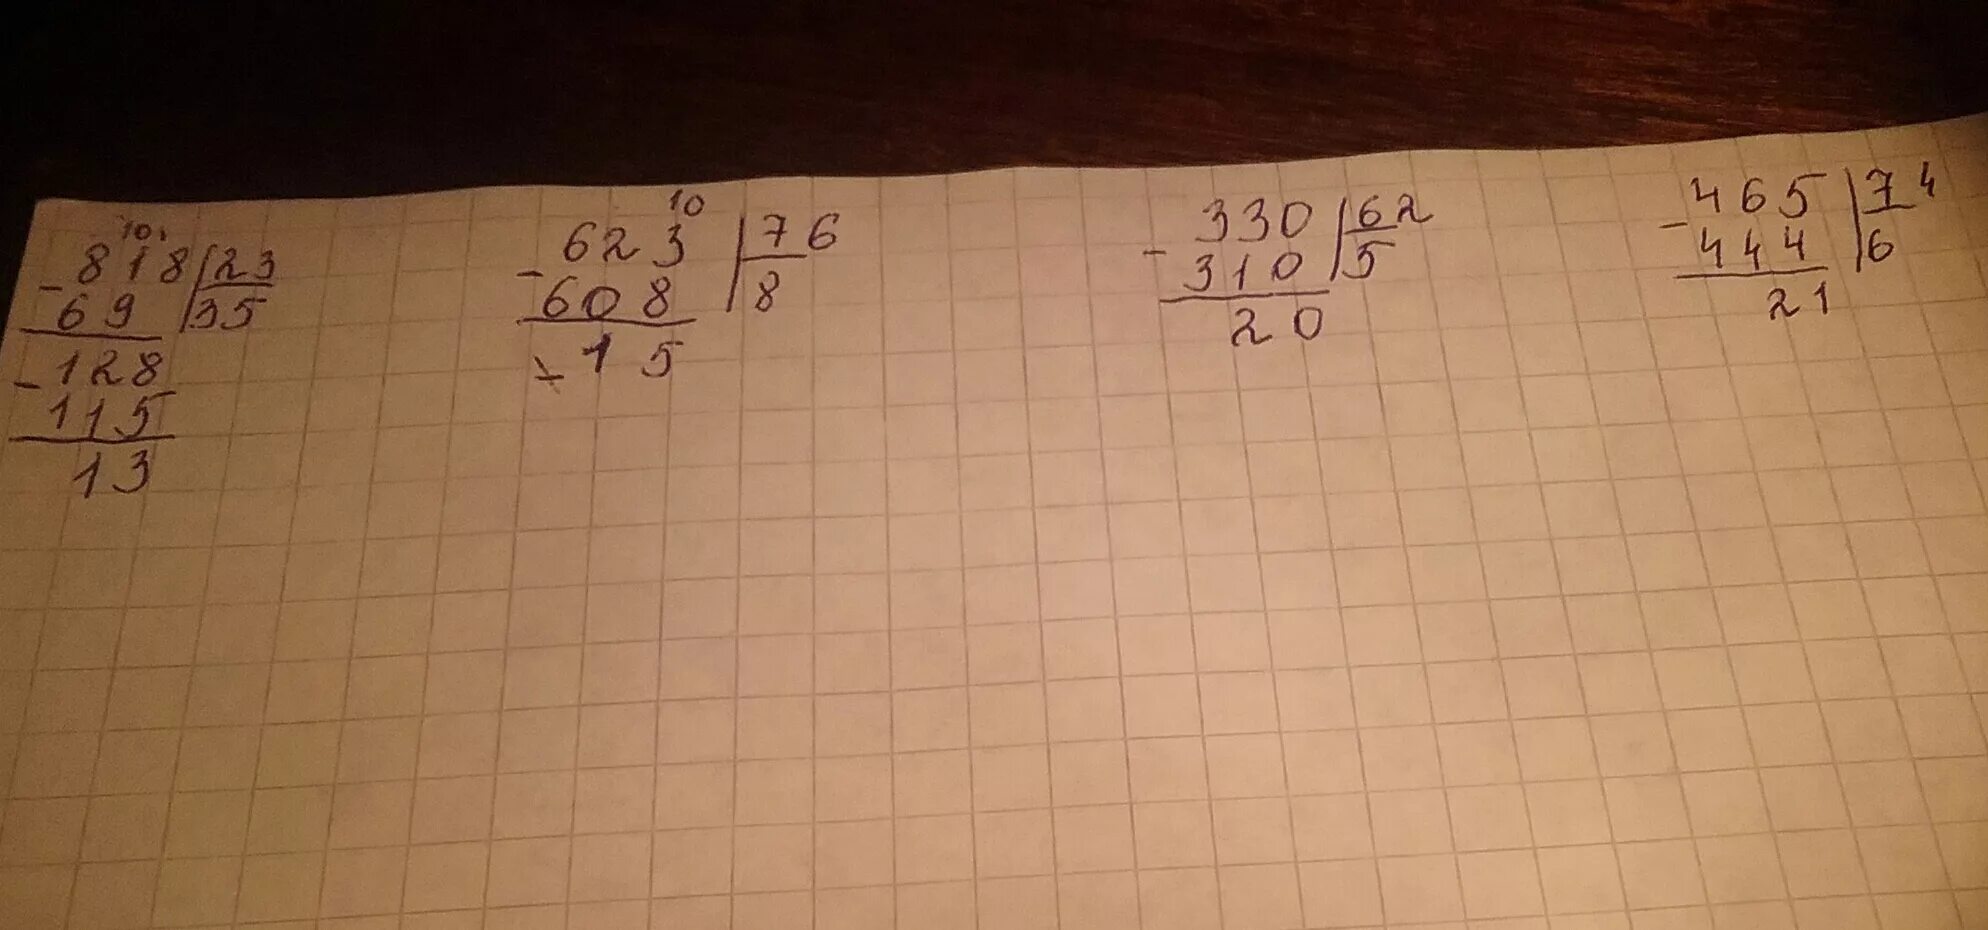 10
- 818 | 23
69 | 35
- 128
115
13
10
- 623 | 76
608 | 8
15
- 330 | 62
310 | 5
20
- 465 | 74
444 | 6
21